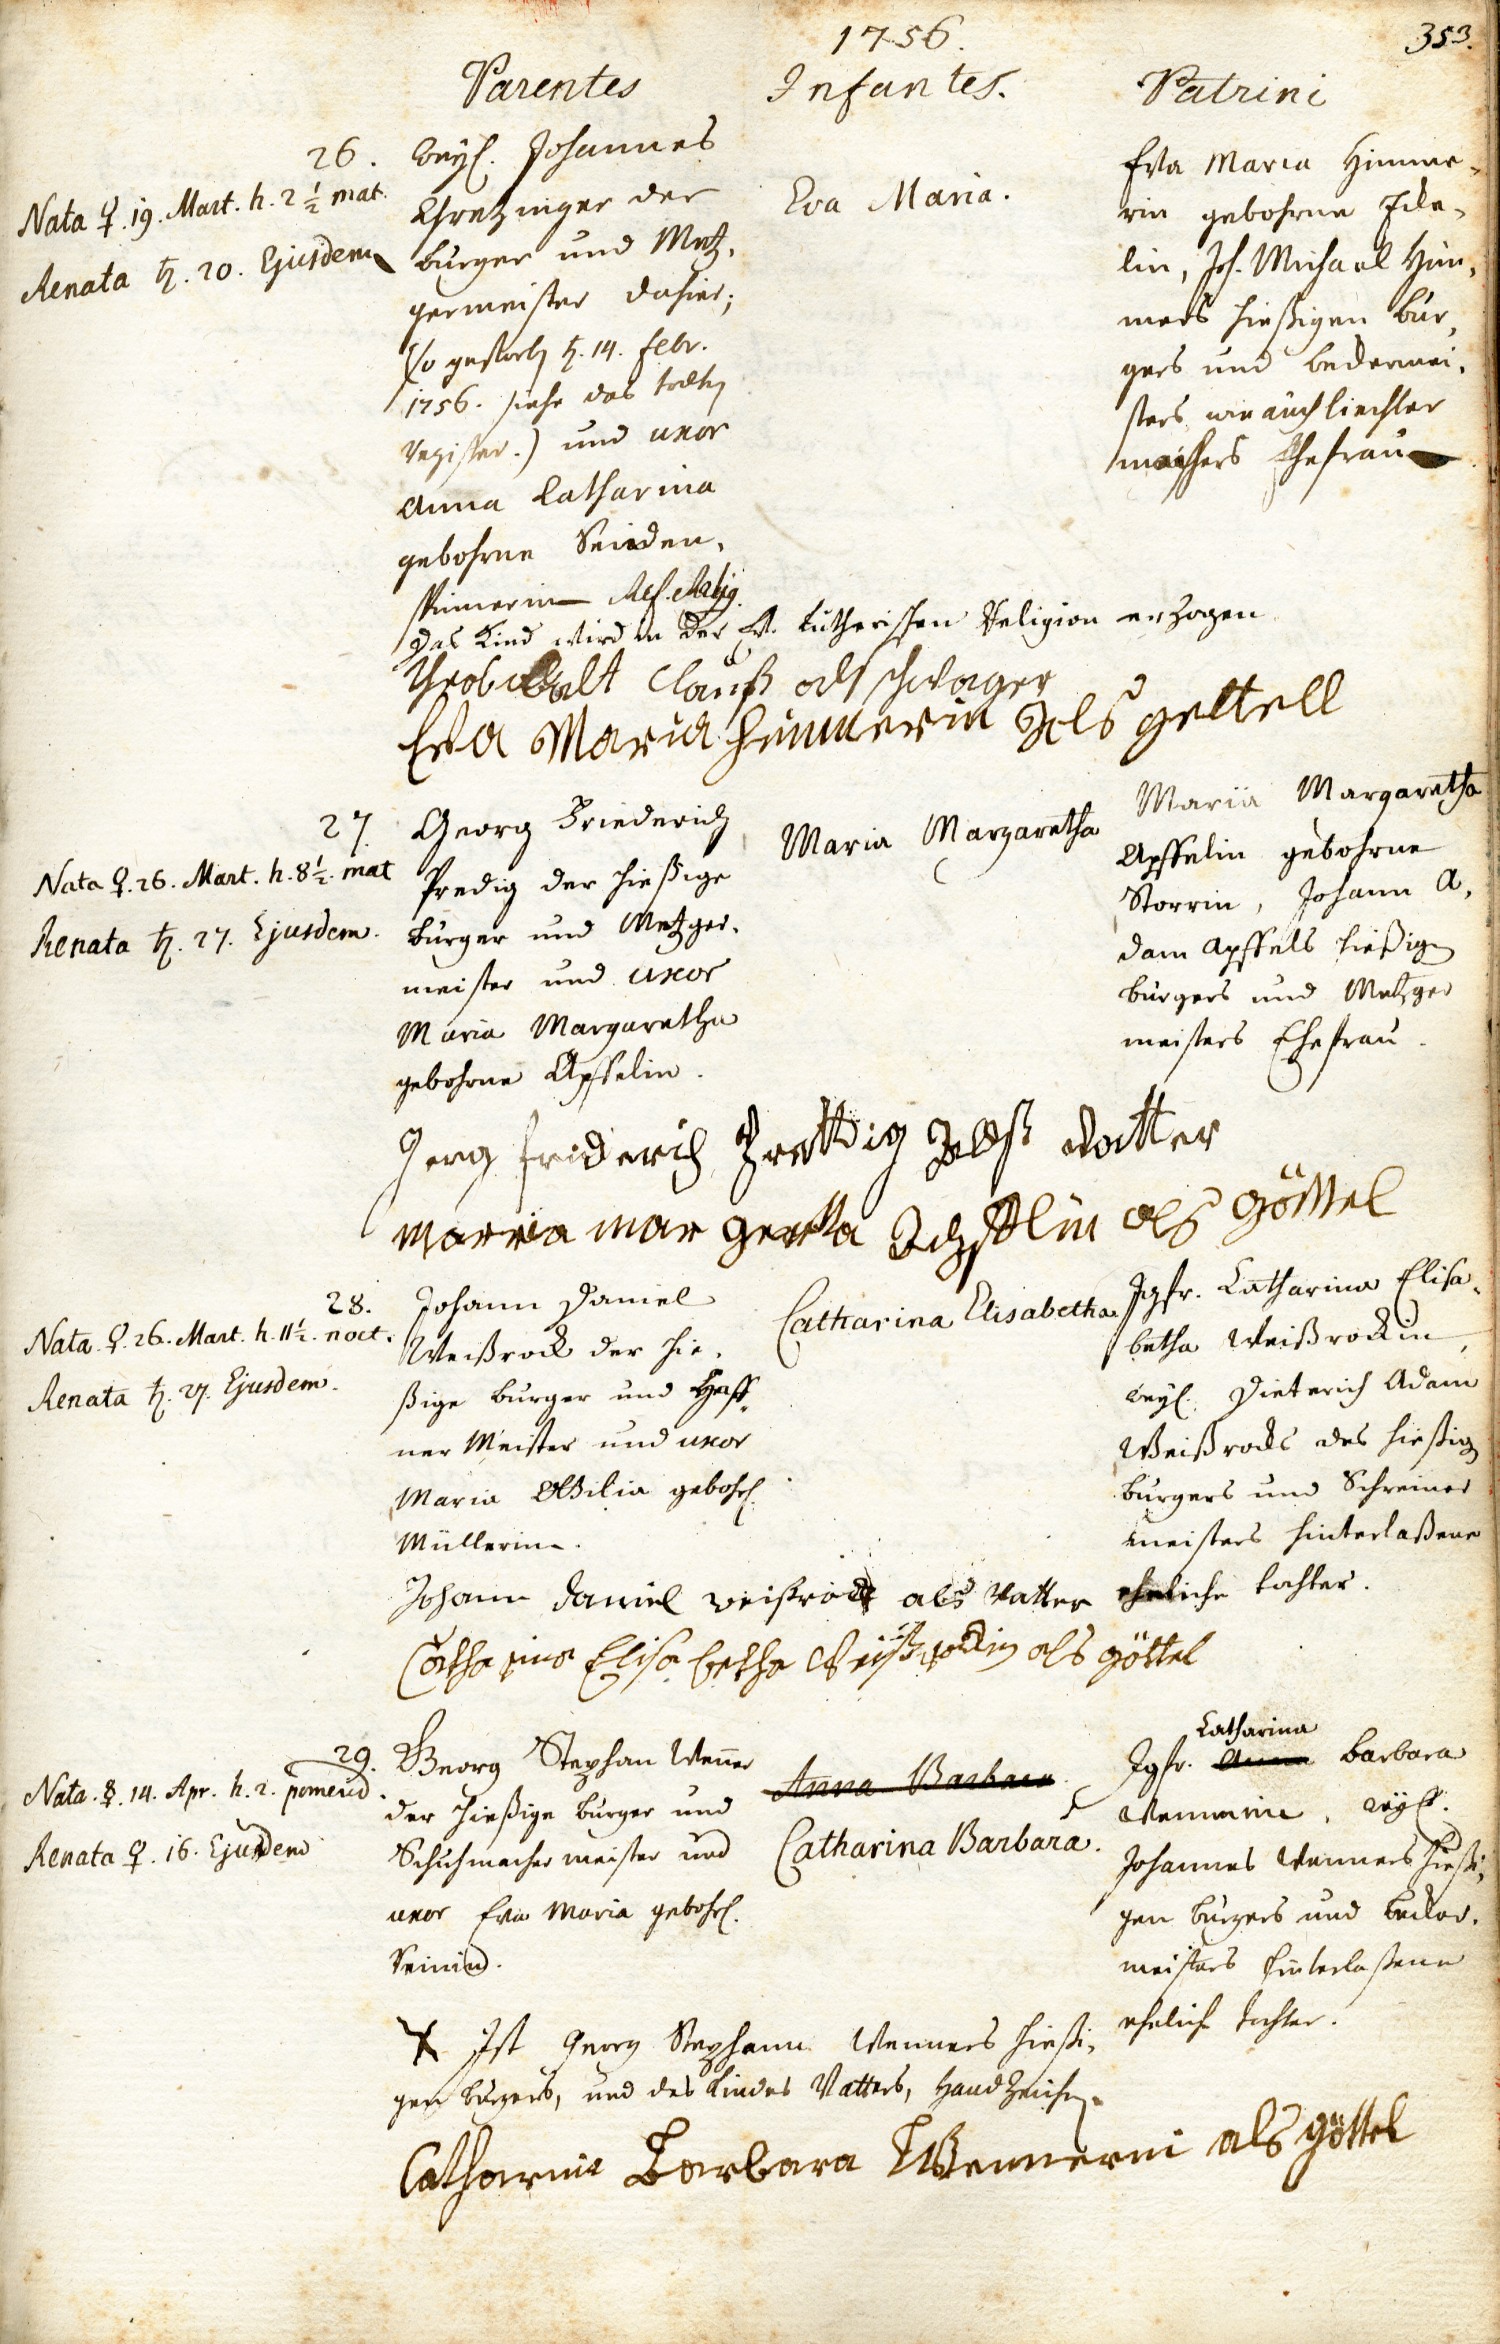 1756.
353.
Parentes
Infantes.
Patrini
26.
Nata ♀. 19. Mart. h. 2 ½ mat.
Renata ♄. 20. Ejusdem
weyl. Johannes
Chretzinger der
burger und Metz,
germeister dahier;
(so gestorb. ♄. 14. Febr.
1756. siehe das todten
Register.) und uxor
Anna Catharina
gebohrne Seiden,
spinnerin Ref. Relig.
Eva Maria.
Eva Maria Himme,
rin gebohrne Ide,
lin, Joh. Michael Him,
mers hießigen bur,
gers und beckermei,
sters wie auch liechter
machers Ehefrau
Das Kind wird in der Ev. Lutherischen Religion erzogen
Theobalt Clauß als schwager
Eva Maria Himmerin Als gettell
27.
Nata ♀. 26. Mart. h. 8½. mat
Renata ♄. 27. Ejusdem.
Georg Friederich
Predig der hießige
burger und Metzger,
meister und uxor
Maria Margaretha
gebohrne Apffelin.
Maria Margaretha
Maria Margaretha
Apffelin gebohrne
Storrin, Johann A,
dam Apffels hießig
burgers und Metzger
meisters Ehefrau.
Jerg friderich Prettig Alß Vatter
Marria mar gretta Apfflin als Göttel
28.
Nata ♀. 26. Mart. h. 11½. noct.
Renata ♄. 27. Ejusdem.
Johann Daniel
Weißrock der hie,
ßige burger und Haff,
ner Meister und uxor
Maria Ottilia gebohr.
Müllerin.
Catharina Elisabetha
Jgfr. Catharina Elisa,
betha Weißrockin,
weyl. Dieterich Adam
Weißrocks des hießig
burgers und Schreiner
meisters hinterlaßene
eheliche tochter.
Johann Daniel weißrock als Vatter
Catharina Elisabetha Weißrockin als göttel
29.
Nata. ☿. 14. Apr. h. 2. pomerid.
Renata ♀. 16. Ejusdem
Georg Stephan Weñer
der hießige burger und
Schuhmacher meister und
uxor Eva Maria gebohr.
Anna Barbara.
Catharina Barbara.
Catharina
Jgfr. Anna Barbara
Wennerin, weyl.
Johannes Wenners hießi,
gen burgers und becker,
meisters hinterlaßene
ehelich tochter.
X Ist Georg Stephann Wenners hießi,
gen burgers, und des Kindes Vatters, Handzeichen.
Catharina Barbara Wennerin als göttel